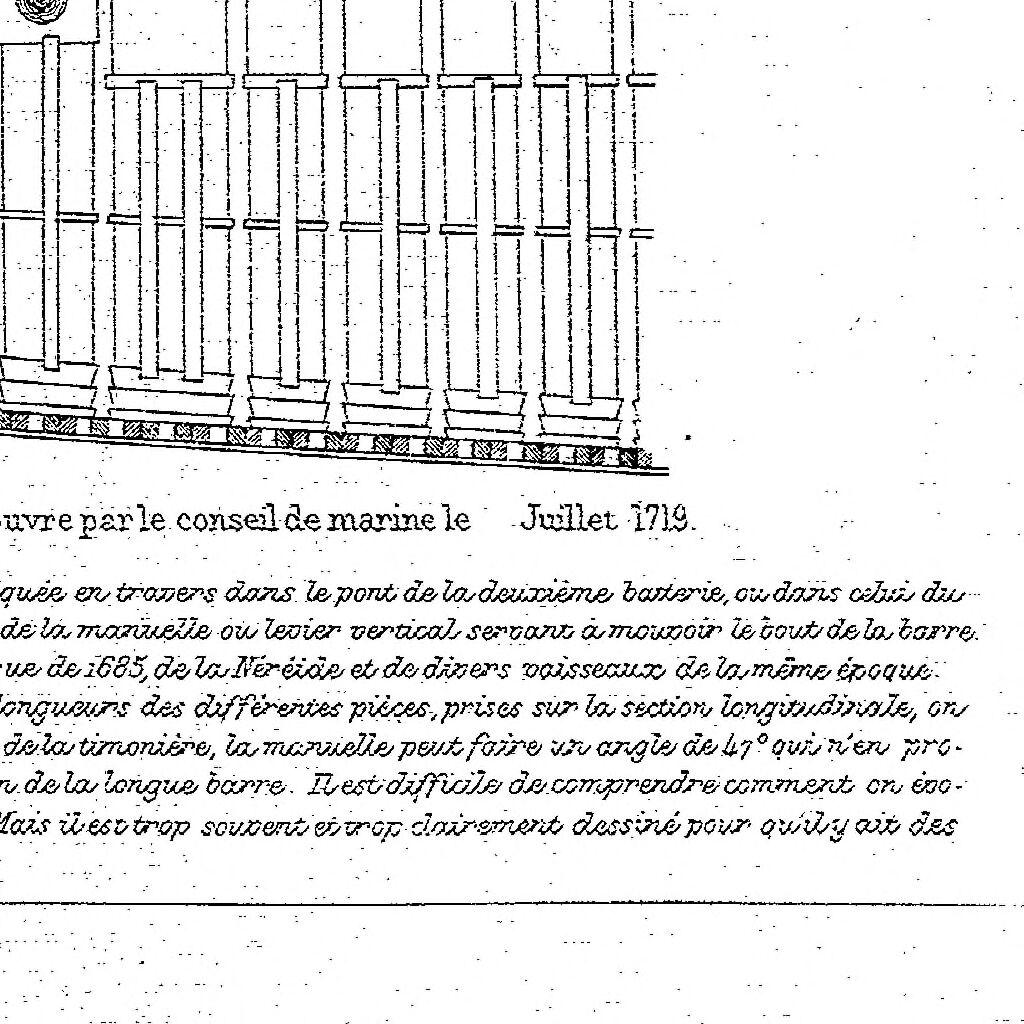 ouvre par le conseil de marine le Juillet 1719.
quée en travers dans le pont de la deuxième batterie, ou dans celui du
de la manuelle ou levier vertical servant à mouvoir le bout de la barre.
que de 1685, de la Néréide et de divers vaisseaux de la même époque.
longueurs des différentes pièces, prises sur la section longitudinale, on
de la timonière, la manuelle peut faire un angle de 47° qui n'en pro-
n de la longue barre. Il est difficile de comprendre comment on évo-
Mais il est trop souvent et trop clairement dessiné pour qu'il y ait des